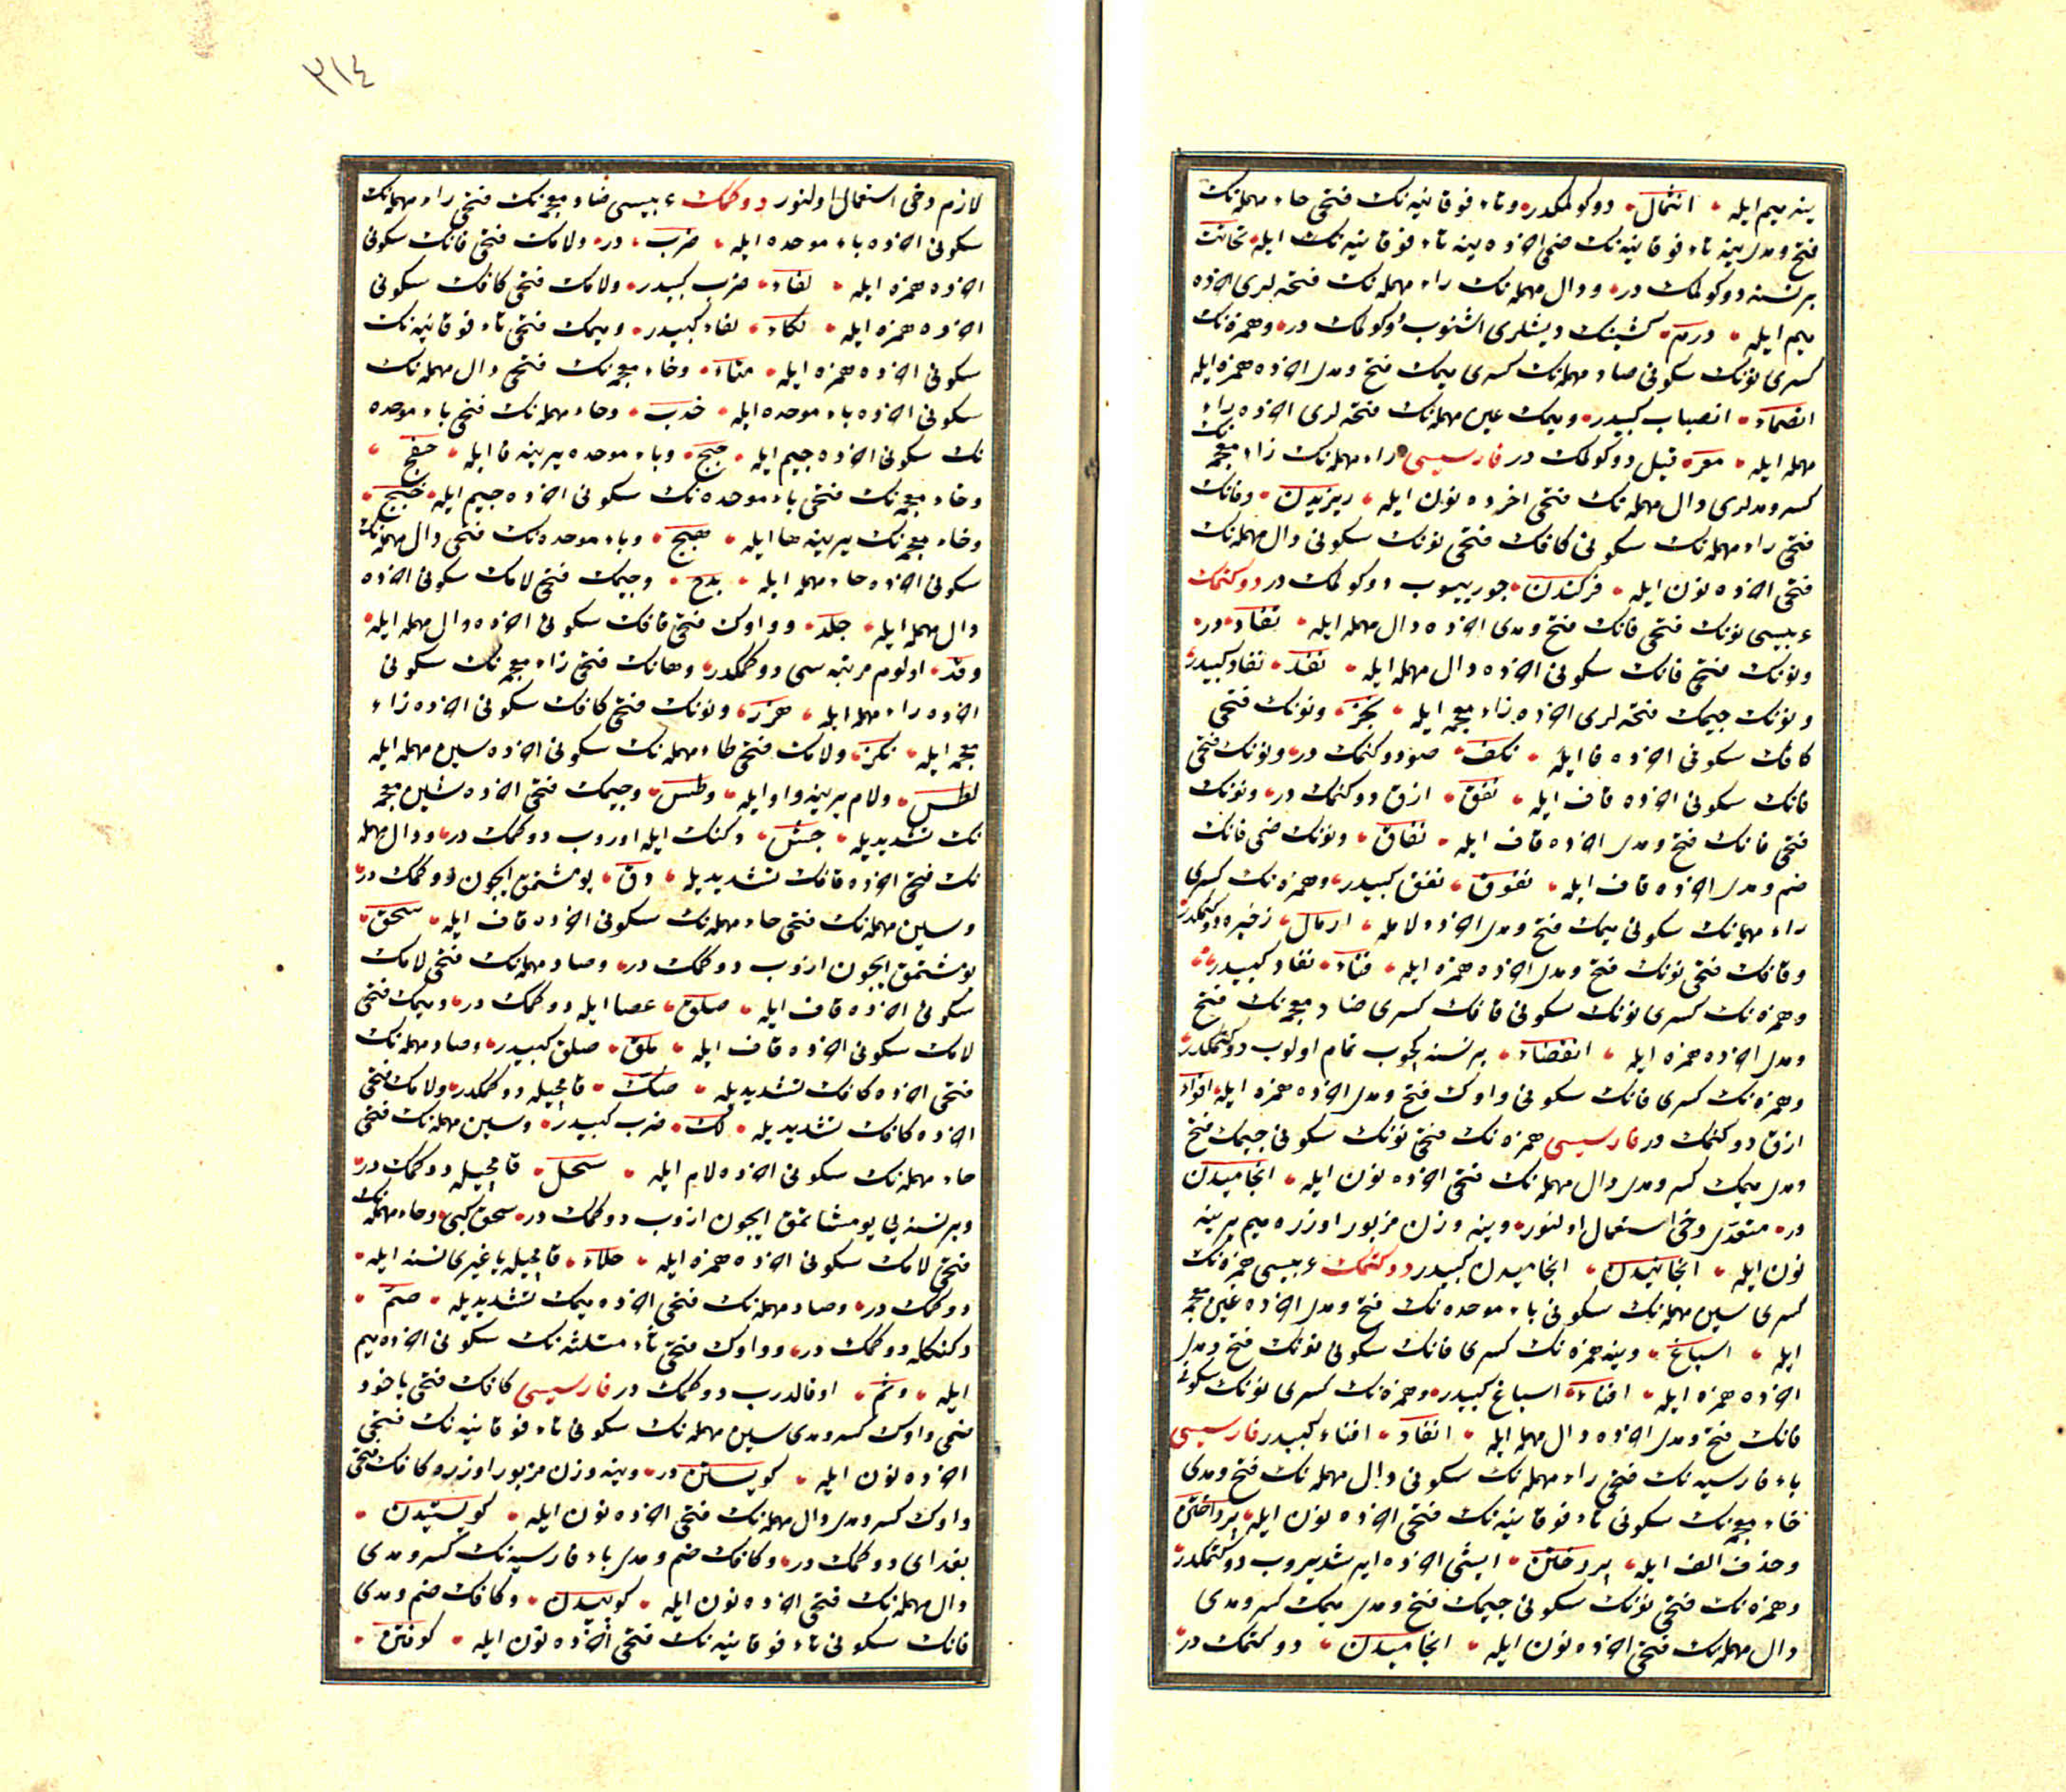 ینه میم ایله انثمال دوکولمکدر وتاء فوقانیه نک فتحی حاء مهمله نک
فتح ومدی ینه تاء فوقانیه نک ضمی اخرده ینه تاء فوقانیه نک ایله تحاتت
برنسنه دوکولمک در ودال مهمله نک راء مهمله نک فتحه لری اخرده
میم ایله درم کشینک دیشلری اشنوب دوکولمک در وهمزه نک
کسری نونک سکونی صاد مهمله نک کسری میمک فتح ومدی اخرده همزه ایله
انصماء انصباب کبیدر ومیمک عین مهمله نک فتحه لری اخرده راء
مهمله ایله معر قیل دوکولمک در فارسیسی راء مهمله نک زاء معجمه نک
کسر ومدلری دال مهمله نک فتحی اخرده نون ایله ریزیدن وفانک
فتحی راء مهمله نک سکونی کافک فتحی نونک سکونی دال مهمله نک
فتحی اخرده نون ایله فرکندن چورییوب دوکولمک در دوکنمک
عربیسی نونک فتحی فانک فتح ومدی اخرده دال مهمله ایله نفاد در
ونونک فتحی فانک سکونی اخرده دال مهمله ایله نفد نفاد کبیدر
ونونک جیمک فتحه لری اخرده زاء معجمه ایله نجز ونونک فتحی
کافک سکونی اخرده فا ایله نکف صو دوکنمک در ونونک فتحی
فانک سکونی اخرده قاف ایله نفق ازق دوکنمک در ونونک
فتحی فانک فتح ومدی اخرده قاف ایله نفاق ونونک ضمی فانک
ضم ومدی اخرده قاف ایله نفوق نفق کبیدر وهمزه نک کسری
راء مهمله نک سکونی میمک فتح ومدی اخرده لامله ارمال زخیره دوکنمکدر
وفانک فتحی نونک فتح ومدی اخرده همزه ایله فناء نفاد کبیدر
وهمزه نک کسری نونک سکونی قافک کسری ضاد معجمه نک فتح
ومدی اخرده همزه ایله انقضاء برنسنه کچوب تمام اولوب دوکنمکدر
وهمزه نک کسری قافک سکونی واوک فتح ومدی اخرده همزه ایله اقواء
ازق دوکنمک در فارسیسی همزه نک فتحی نونک سکونی جیمک فتح
ومدی میمک کسر ومدی دال مهمله نک فتحی اخرده نون ایله انجامیدن
در متعدی دخی استعمال اولنور وینه وزن مزبور اوزره میم یرینه
نون ایله انجانیدن انجامیدن کبیدر دوکنمک عربیسی همزه نک
کسری سین مهمله نک سکونی باء موحده نک فتح ومدی اخرده غین معجمه
ایله اسباغ وینه همزه نک کسری فانک سکونی نونک فتح ومدی
اخرده همزه ایله افناء اسباغ کبیدر وهمزه نک کسری نونک سکونی
فانک فتح ومدی اخرده دال مهمله ایله انفاد افناء کبیدر فارسیسی
باء فارسیه نک فتحی راء مهمله نک سکونی دال مهمله نک فتح ومدی
خاء معجمه نک سکونی تاء فوقانیه نک فتحی اخرده نون ایله پرداختن
وحذف الف ایله پردختن ایشی اخره ایرشدیروب دوکتمکدر
وهمزه نک فتحی نونک سکونی جیمک فتح ومدی میمک کسر ومدی
دال مهمله نک فتحی اخرده نون ایله انجامیدن دوکتمک در
٣١٤
لازم دخی استعمال اولنور دوکمک عربیسی ضاد معجمه نک فتحی راء مهمله نک
سکونی اخرده باء موحده ایله ضرب در ولامک فتحی فانک سکونی
اخرده همزه ایله لفاء ضرب کبیدر ولامک فتحی کافک سکونی
اخرده همزه ایله لکاء لفاء کبیدر ومیمک فتحی تاء فوقانیه نک
سکونی اخرده همزه ایله متاء وخاء معجمه نک فتحی دال مهمله نک
سکونی اخرده باء موحده ایله خدب وحاء مهمله نک فتحی باء موحده
نک سکونی اخرده جیم ایله حبج وباء موحده یرینه فا ایله حفج
وخاء معجمه نک فتحی باء موحده نک سکونی اخرده جیم ایله خبج
وخاء معجمه نک یرینه ها ایله هبج وباء موحده نک فتحی دال مهمله نک
سکونی اخرده حاء مهمله ایله بدح وجیمک فتحی لامک سکونی اخرده
دال مهمله ایله جلد وواوک فتحی قافک سکونی اخرده دال مهمله ایله
وقد اولوم مرتبه سی دوکمکدر وهانک فتحی زاء معجمه نک سکونی
اخرده راء مهمله ایله هزر ونونک فتحی کافک سکونی اخرده زاء
معجمه ایله نکز ولامک فتحی طاء مهمله نک سکونی اخرده سین مهمله ایله
لطس ولام یرینه واو ایله وطس وجیمک فتحی اخرده شین معجمه
نک تشدیدیله جش دکنک ایله اوروب دوکمک در ودال مهمله
نک فتحی اخرده قافک تشدیدیله دق یومشتمق ایچون دوکمک در
وسین مهمله نک فتحی حاء مهمله نک سکونی اخرده قاف ایله سحق
یومشتمق ایچون ازوب دوکمک در وصاد مهمله نک فتحی لامک
سکونی اخرده قاف ایله صلق عصا ایله دوکمک در ومیمک فتحی
لامک سکونی اخرده قاف ایله ملق صلق کبیدر وصاد مهمله نک
فتحی اخرده کافک تشدیدیله صک قامچیله دوکمکدر ولامک فتحی
اخرده کافک تشدیدیله لک ضرب کبیدر وسین مهمله نک فتحی
حاء مهمله نک سکونی اخرده لام ایله سحل قامچیله دوکمک در
وبرنسنه یی یومشاتمق ایچون ازوب دوکمک در سحق کبی وحاء مهمله نک
فتحی لامک سکونی اخرده همزه ایله حلاء قامچیله یا غیری نسنه ایله
دوکمک در وصاد مهمله نک فتحی اخرده میمک تشدیدیله صم
دکنکله دوکمک در وواوک فتحی ثاء مثلثه نک سکونی اخرده میم
ایله وثم اوفالدرب دوکمک در فارسیسی کافک فتحی یاخود
ضمی واوک کسر ومدی سین مهمله نک سکونی تاء فوقانیه نک فتحی
اخرده نون ایله کویستن در وینه وزن مزبور اوزره کافک فتحی
واوک کسر ومدی دال مهمله نک فتحی اخرده نون ایله کویستیدن
بغدای دوکمک در وکافک ضم ومدی باء فارسیه نک کسر ومدی
دال مهمله نک فتحی اخرده نون ایله کوپیدن وکافک ضم ومدی
فانک سکونی تاء فوقانیه نک فتحی اخرده نون ایله کوفتن